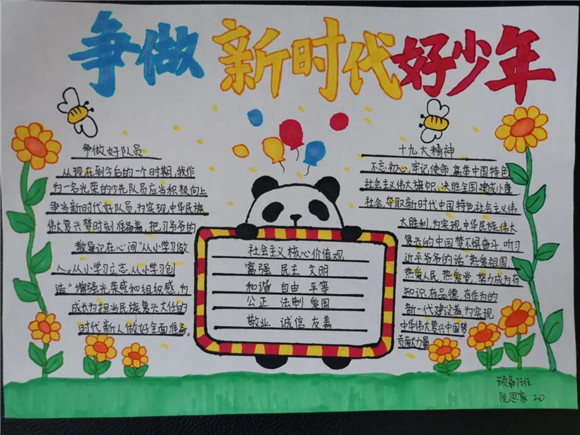 争做 新时代 好少年
争做好队员
从现在到今后的一个时期,我作
为一名光荣的少先队员应当积极向上
争当新时代好队员,为实现中华民族
伟大复兴梦时刻准备着,把习爷爷的
教导记在心间"从小学习做
人。从小学习立志,从小学习创
造"增强光荣感和组织感,为
成长为担当民族复兴大任的
时代新人做好全面准备。
社会主义核心价值观
富强 民主 文明
和谐 自由 平等
公正 法制 爱国
敬业 诚信 友善
十九大精神
不忘初心,牢记使命,高举中国特色
社会主义伟大旗帜,决胜全国建成小康
社会,夺取新时代中国特色社会主义伟
大胜利,为实现中华民族伟大
复兴的中国梦不懈奋斗,听习
近平爷爷的话"热爱祖国
热爱人民,热爱党,努力成为有
知识,有品德,有作为的
新一代建设者,为实现
中华伟大复兴中国梦
贡献力量
班
20